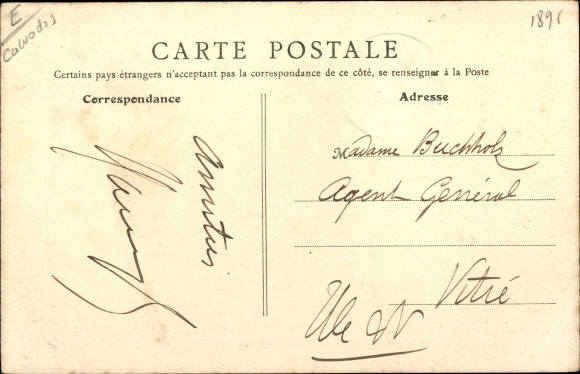 E
Calvados
1891
CARTE POSTALE
Certains pays étrangers n'acceptant pas la correspondance de ce côté, se renseigner à la Poste
Correspondance
Amitiés
Adresse
Madame Buchholz
Agent Général
Vitré
Ille & V